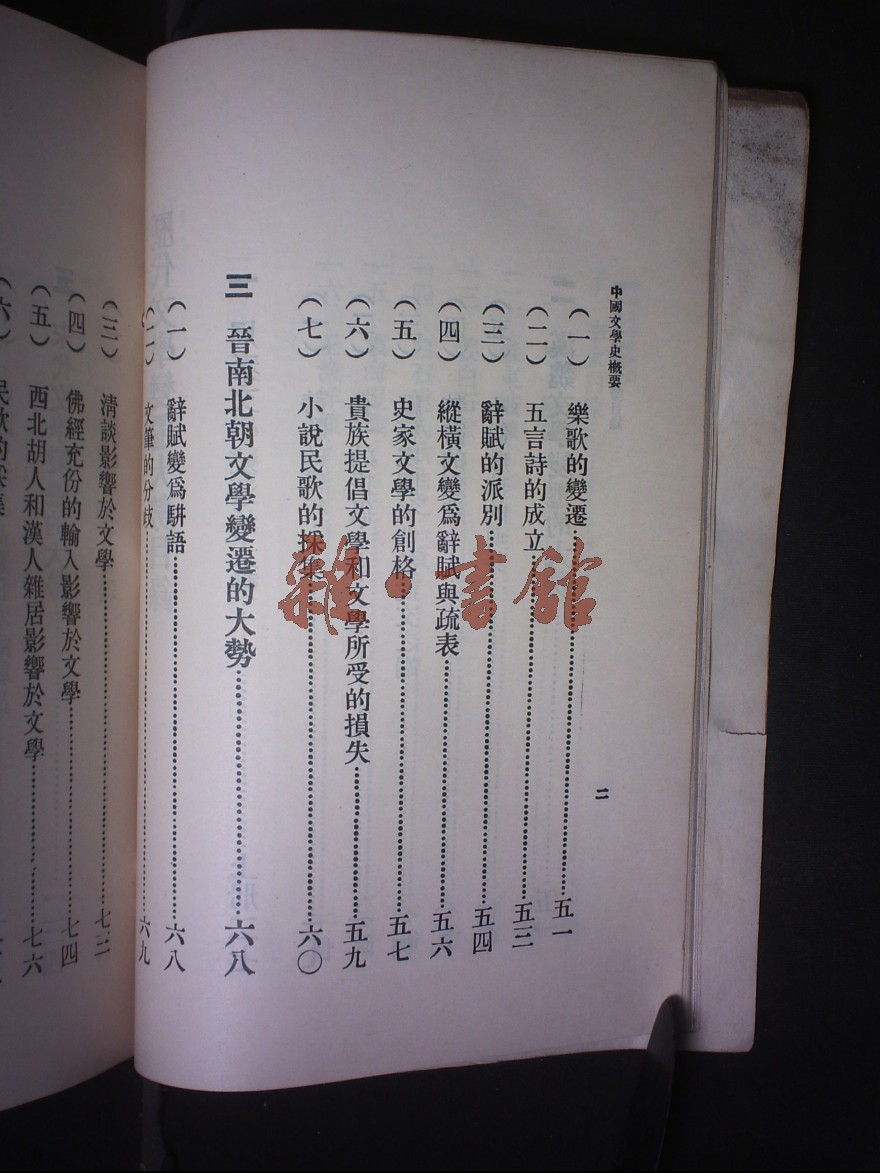 中國文學史槪要
二
（一）　樂歌的變遷………五一
（二）　五言詩的成立………五三
（三）　辭賦的派別………五四
（四）　縱橫文變爲辭賦與疏表………五六
（五）　史家文學的創格………五七
（六）　貴族提倡文學和文學所受的損失………五九
（七）　小說民歌的採集………六〇
三　晉南北朝文學變遷的大勢………六八
（一）　辭賦變爲駢語………六八
（二）　文筆的分歧………六九
（三）　淸談影響於文學………七三
（四）　佛經充份的輸入影響於文學………七四
（五）　西北胡人和漢人雜居影響於文學………七六
（六）　民歌的採集
雅·書館